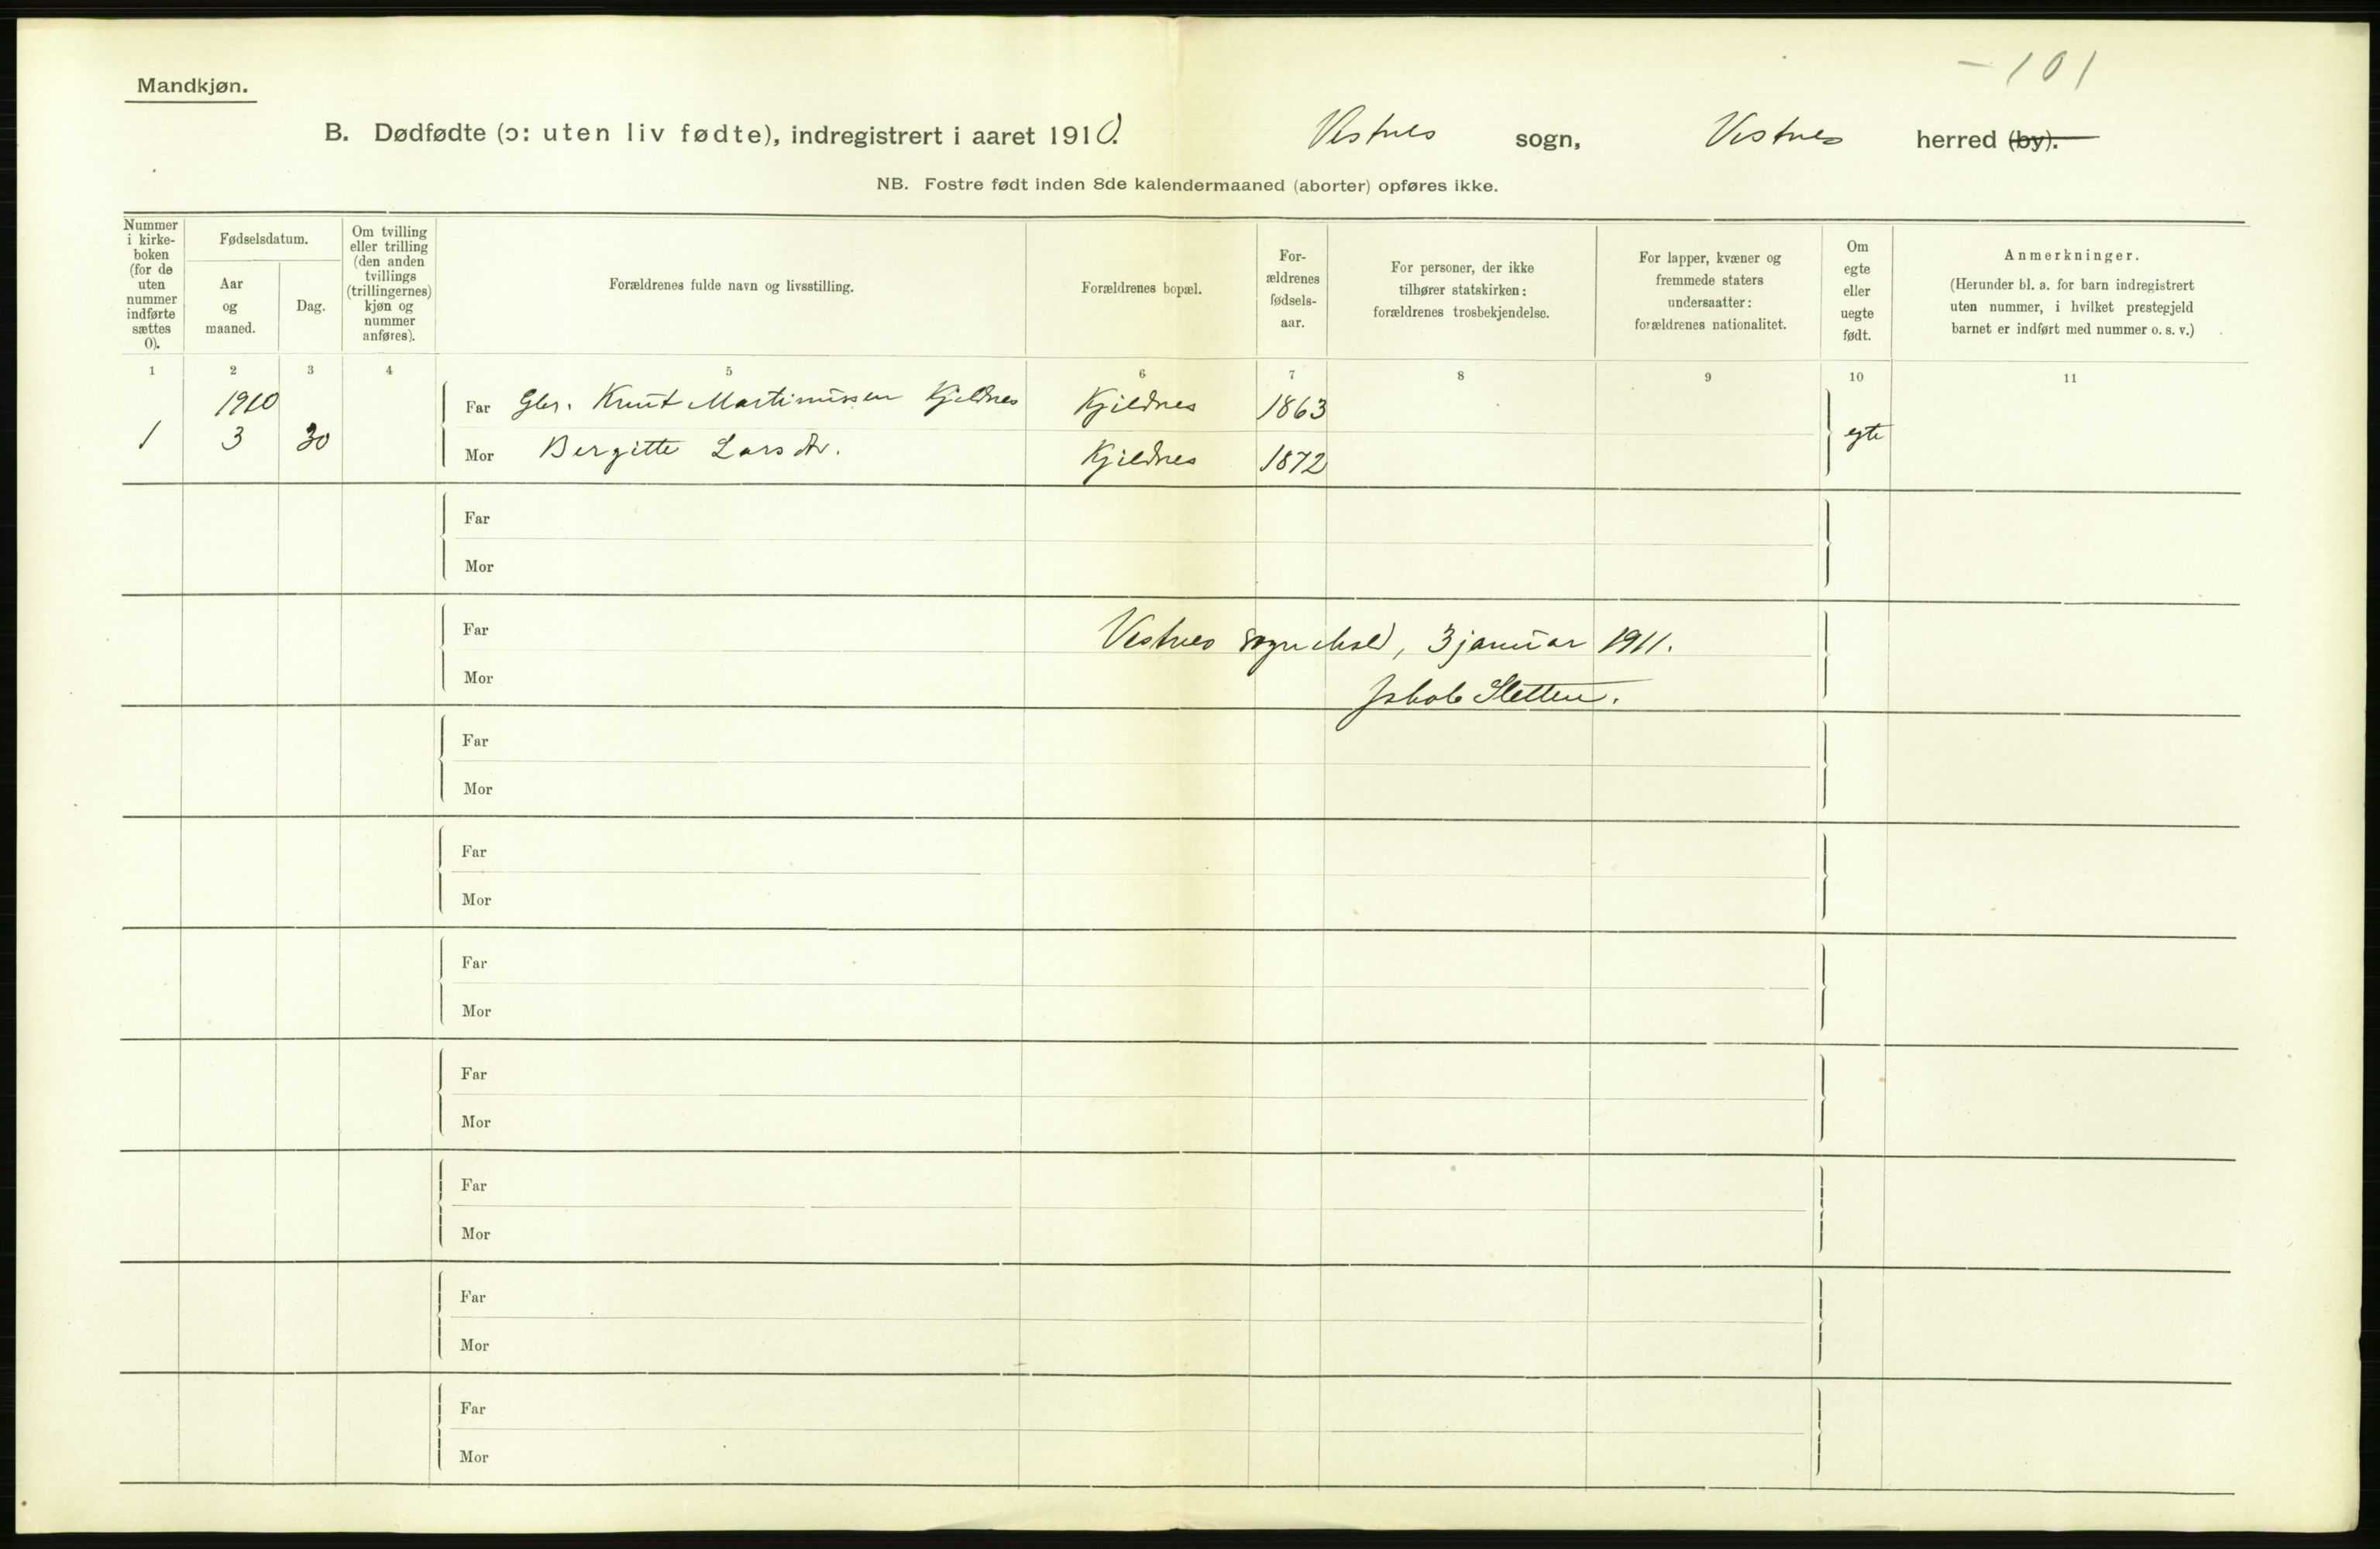 - 101
Mandkjøn.
B. Dødfødte (ɔ: uten liv fødte), indregistrert i aaret 1910. Vestnes sogn, Vestnes herred (by).
NB. Fostre født inden 8de kalendermaaned (aborter) opføres ikke.
Nummer
i kirke-
boken
(for de
uten
nummer
indførte
sættes
0).
Fødselsdatum.
Aar
og
maaned.
Dag.
Om tvilling
eller trilling
(den anden
tvillings
(trillingernes)
kjøn og
nummer
anføres).
Forældrenes fulde navn og livsstilling.
Forældrenes bopæl.
For-
ældrenes
fødsels-
aar.
For personer, der ikke
tilhører statskirken:
forældrenes trosbekjendelse.
For lapper, kvæner og
fremmede staters
undersaatter:
forældrenes nationalitet.
Om
egte
eller
uegte
født.
Anmerkninger.
(Herunder bl. a. for barn indregistrert
uten nummer, i hvilket prestegjeld
barnet er indført med nummer o. s. v.)
1 2 3 4 5 6 7 8 9 10 11
1910 Far Gbr. Knut Martinussen Kjeldnes Kjeldnes 1863
1 3 30 Mor Bergitte Larsdtr. Kjeldnes 1872 egte
Far
Mor
Far
Vestnes 3 januar 1911.
Mor
Jakob Sletten.
Far
Mor
Far
Mor
Far
Mor
Far
Mor
Far
Mor
Far
Mor
Far
Mor